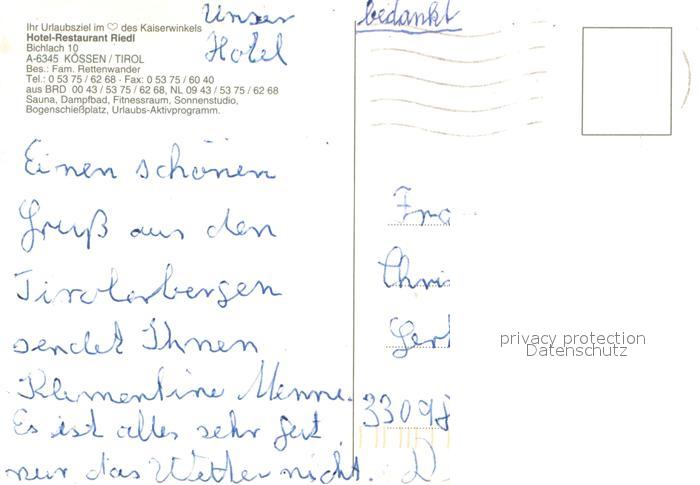 Ihr Urlaubsziel im ♡ des Kaiserwinkels
Hotel-Restaurant Riedl
Bichlach 10
A-6345 KÖSSEN / TIROL
Bes.: Fam. Rettenwander
Tel.: 0 53 75 / 62 68 · Fax: 0 53 75 / 60 40
aus BRD 00 43 / 53 75 / 62 68, NL 09 43 / 53 75 / 62 68
Sauna, Dampfbad, Fitnessraum, Sonnenstudio,
Bogenschießplatz, Urlaubs-Aktivprogramm.
Unser
Hotel
Einen schönen
Gruß aus den
Tirolerbergen
sendet Ihnen
Klementine Menne.
Es ist alles sehr gut
nur das Wetter nicht.
bedankt
Fra
Chri
Ger
33098
D
privacy protection
Datenschutz